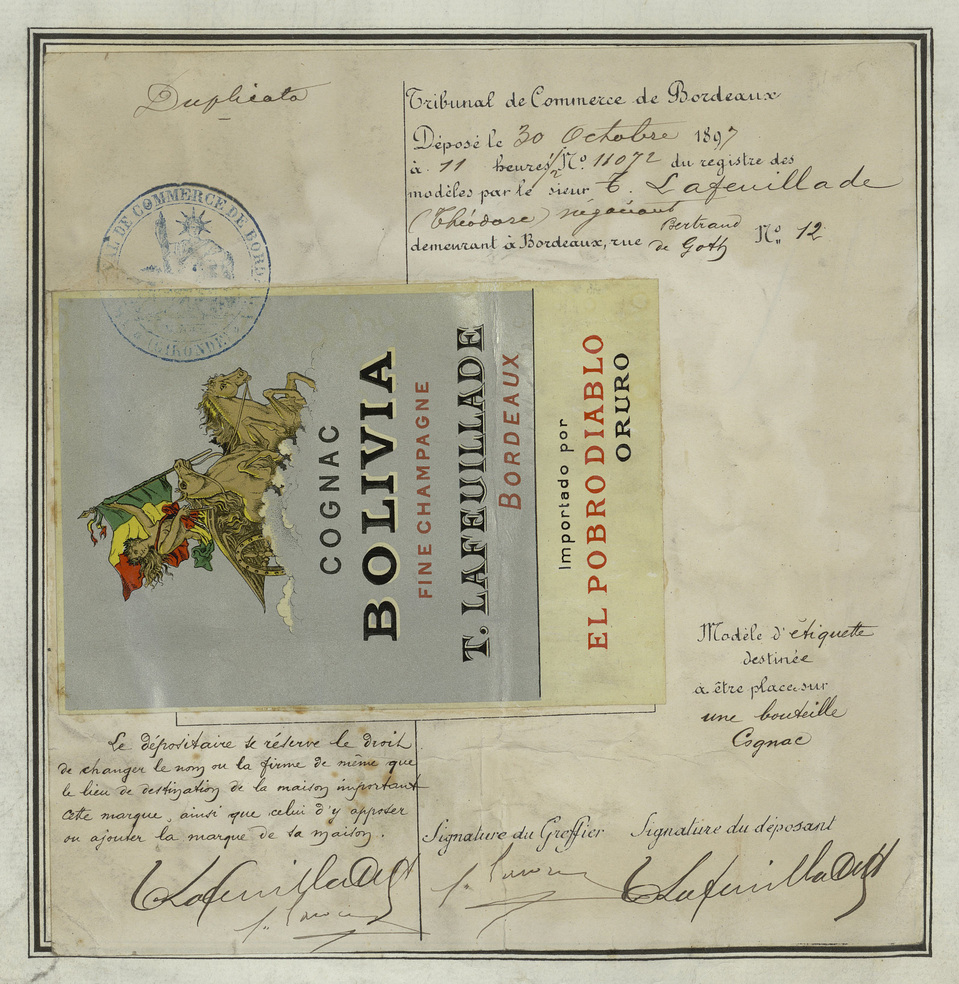 Duplicata
Tribunal de Commerce de Bordeaux
Déposé le 30 Octobre 1897
à 11 heures 1/2 No. 11072 du registre des
modèles par le sieur T. Lafeuillade
(Théodore) négociant
demeurant à Bordeaux, rue Bertrand de Goth No. 12
COMMERCE DE BORD
GIRONDE
COGNAC
BOLIVIA
FINE CHAMPAGNE
T. LAFEUILLADE
BORDEAUX
Importado por
EL POBRO DIABLO
ORURO
Modèle d'étiquette
destinée
à être place sur
une bouteille
Cognac
Le dépositaire se réserve le droit
de changer le nom ou la firme de même que
le lieu de destination de la maison important
cette marque, ainsi que celui d'y apposer
ou ajouter la marque de sa maison.
Signature du Greffier
Signature du déposant
TLafeuillade
TLafeuillade